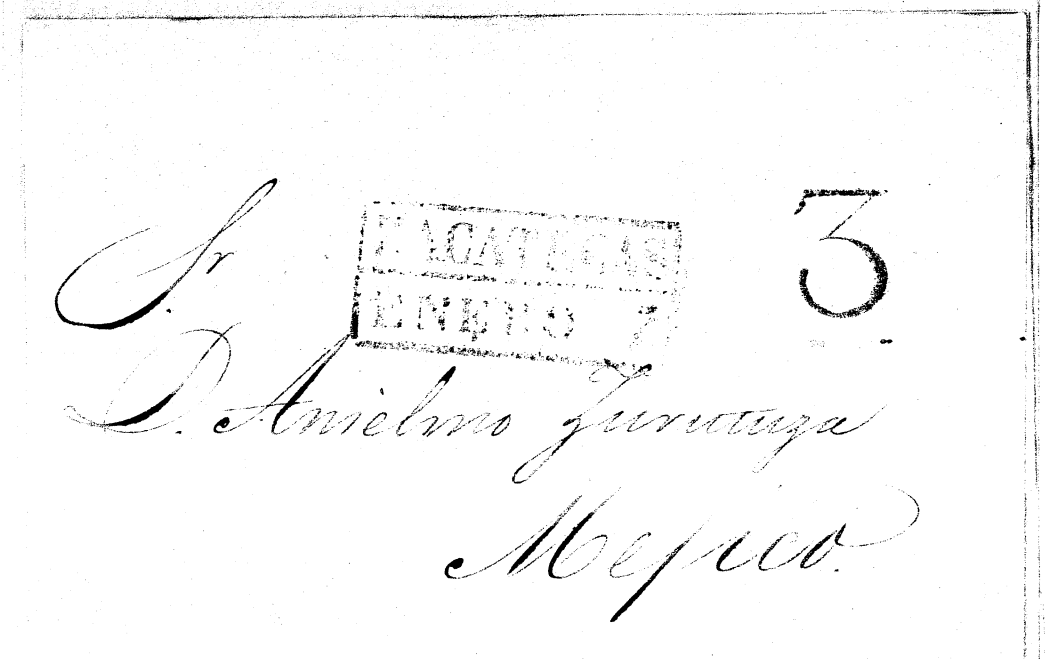 Sr
ZACATECAS
ENERO 7
3
D. Anselmo Zurutuza
Mejico.